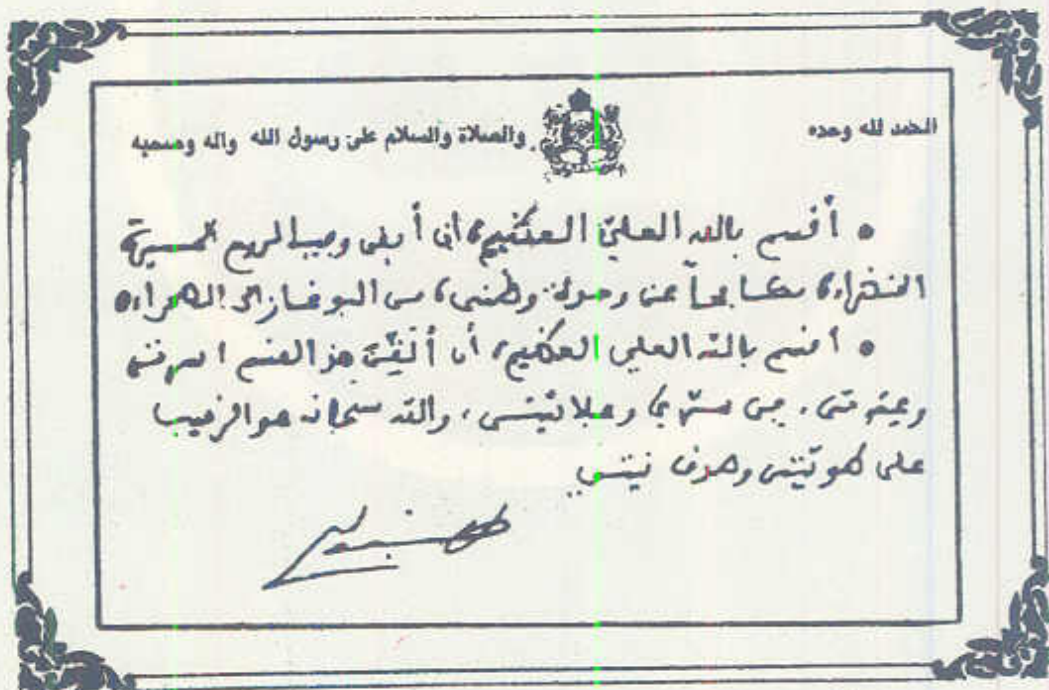 الحمد لله وحده والصلاة والسلام على رسول الله واله وصحبه
• أقسم بالله العليّ العظيم، أن أبقى وفيا لروح المسيرة
الخضراء، مكافحاً عن وحدة وطني، من البوغاز إلى الصحراء
• أقسم بالله العلي العظيم، أن ألقّن هذا القسم أسرتي
وعترتي، في سرّي وعلانيتي، والله سبحانه هو الرقيب
على طويّتي وصدق نيتي